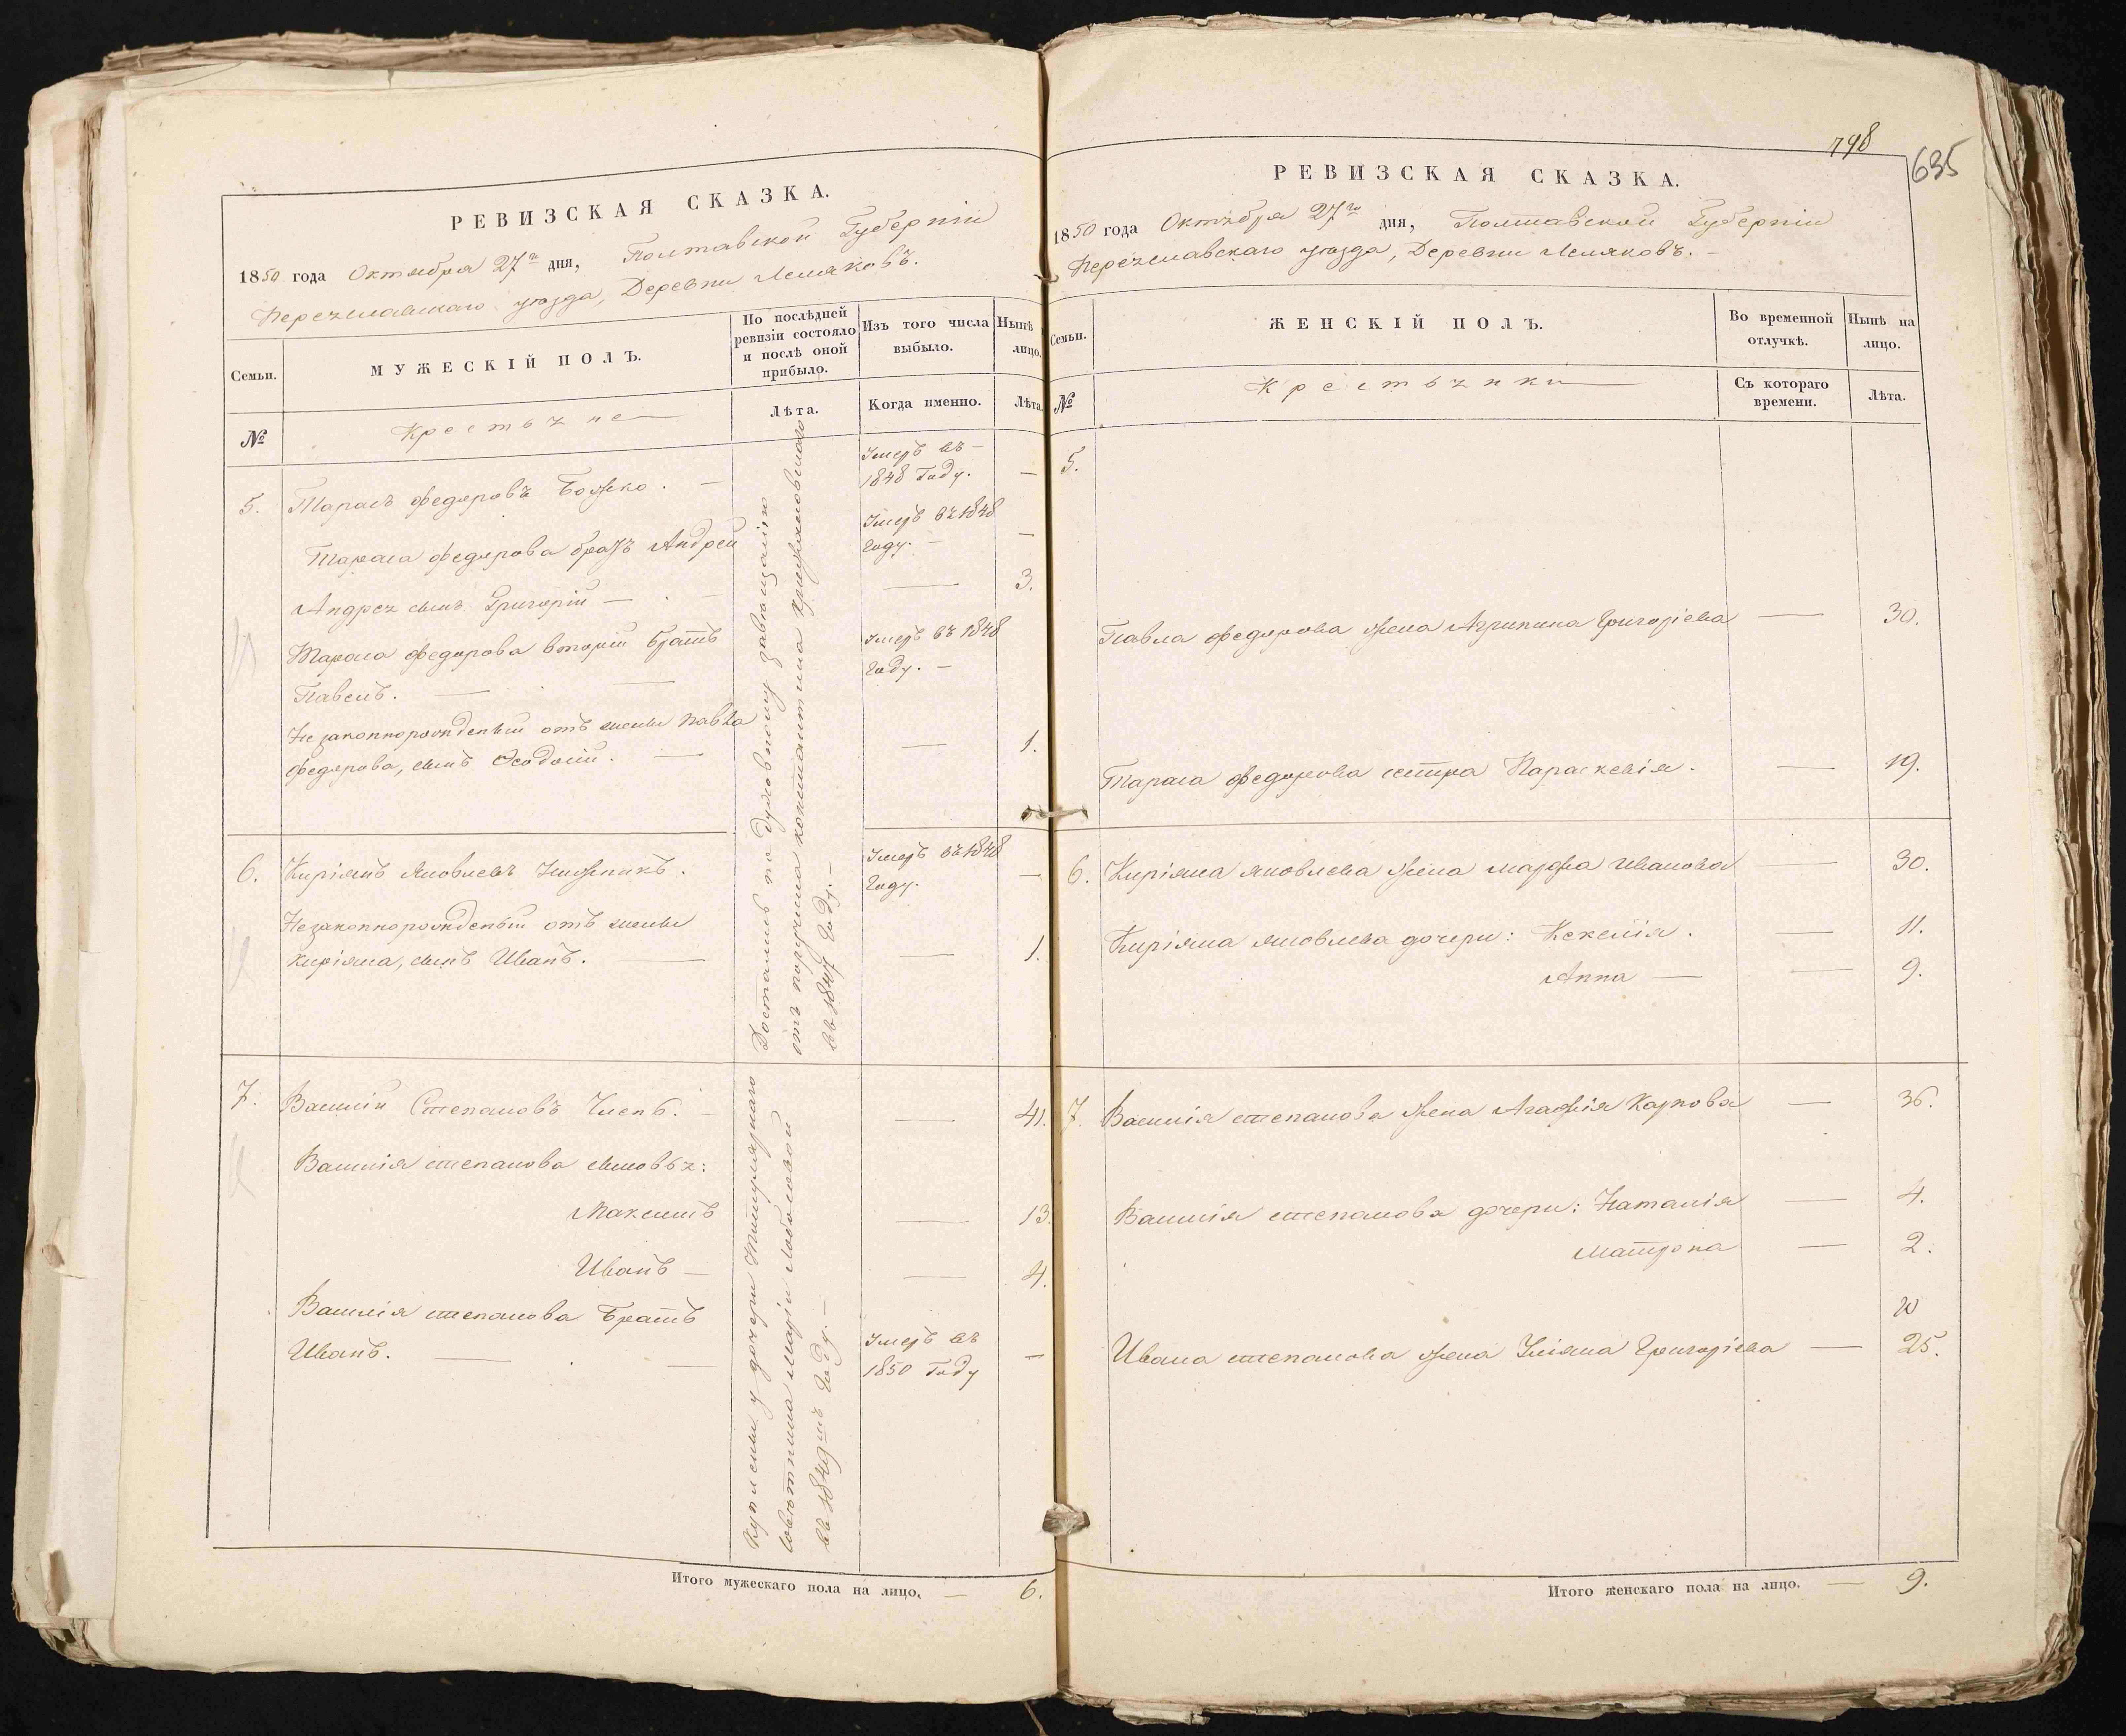 РЕВИЗСКАЯ СКАЗКА.
1850 года Октября 27го дня, Полтавской Губерніи
Переяславскаго уѣзда, Деревни Лемяковъ.
Семьи.
МУЖЕСКІЙ ПОЛЪ.
По послѣдней
ревизіи состояло
и послѣ оной
прибыло.
Изъ того числа
выбыло.
Нынѣ
лицо.
№
Крестьяне
Лѣта.
Когда именно.
Лѣта.
5.
Тарасъ Федоровъ Божко. —
Умеръ въ —
1848 Году.
—
Тараса Федорова братъ Андрей
Умеръ въ 1848
Году. —
—
Андрея сынъ Григорій —
—
3.
Тараса Федорова вторій братъ
Павелъ. —
Умеръ въ 1848
Году. —
Незаконнорожденый отъ жены Павла
Федорова, сынъ Феодосій. —
—
1.
6.
Киріянъ Яковлевъ .
Умеръ въ 1848
Году.
—
Незаконнорожденый отъ жены
Киріяна, сынъ Иванъ. —
—
1.
Достались по духовному завещанію
отъ поручика Константина
въ 1847 Году. —
7.
Василій Степановъ . —
—
41.
Василія Степанова сыновья:
Максимъ
—
13.
Иванъ —
—
4.
Василія Степанова Братъ
Иванъ. —
Умеръ въ
1850 Году
—
Куплены у дочери Титулярнаго
Советника Маріи
въ 1849мъ Году. —
Итого мужескаго пола на лицо. — 6.
798
635
РЕВИЗСКАЯ СКАЗКА.
1850 года Октября 27го дня, Полтавской Губерніи
Переяславскаго уѣзда, Деревни Лемяковъ. —
Семьи.
ЖЕНСКІЙ ПОЛЪ.
Во временной
отлучкѣ.
Нынѣ на
лицо.
№
Крестьянки
Съ котораго
времени.
Лѣта.
5.
Павла Федорова жена Агрипина Григоріева — 30.
Тараса Федорова сестра Параскевія. — 19.
6. Киріяна Яковлева жена Марфа Иванова — 30.
Киріяна Яковлева дочери: Кекелія. — 11.
Анна — — 9.
7. Василія Степанова жена Агафія Карпова — 36.
Василія Степанова дочери: Наталія — 4.
Матрона — 2.
Ивана Степанова жена Уліяна Григоріева — 25.
Итого женскаго пола на лицо. — 9.